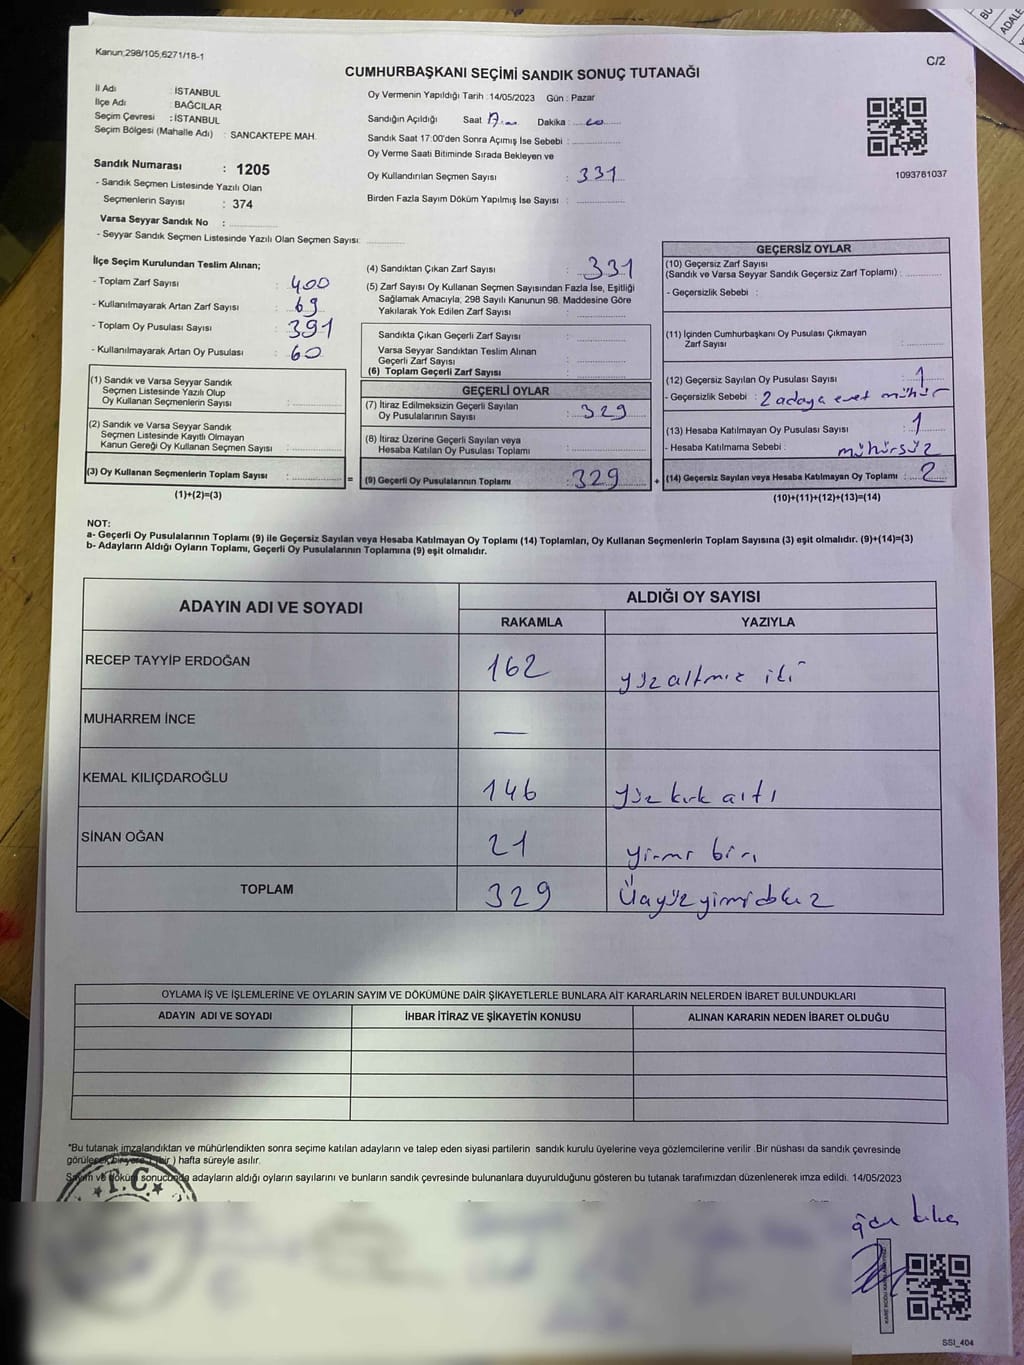 Kanun:298/105,6271/18-1
C/2
CUMHURBAŞKANI SEÇİMİ SANDIK SONUÇ TUTANAĞI
İl Adı : İSTANBUL
İlçe Adı : BAĞCILAR
Seçim Çevresi : İSTANBUL
Seçim Bölgesi (Mahalle Adı) : SANCAKTEPE MAH.
Sandık Numarası : 1205
- Sandık Seçmen Listesinde Yazılı Olan
Seçmenlerin Sayısı : 374
Varsa Seyyar Sandık No :
- Seyyar Sandık Seçmen Listesinde Yazılı Olan Seçmen Sayısı:
Oy Vermenin Yapıldığı Tarih :14/05/2023 Gün : Pazar
Sandığın Açıldığı Saat Dakika :
Sandık Saat 17:00'den Sonra Açımış İse Sebebi :
Oy Verme Saati Bitiminde Sırada Bekleyen ve
Oy Kullandırılan Seçmen Sayısı : 331
Birden Fazla Sayım Döküm Yapılmış İse Sayısı :
1093781037
İlçe Seçim Kurulundan Teslim Alınan;
- Toplam Zarf Sayısı : 400
- Kullanılmayarak Artan Zarf Sayısı : 69
- Toplam Oy Pusulası Sayısı : 391
- Kullanılmayarak Artan Oy Pusulası : 60
(1) Sandık ve Varsa Seyyar Sandık
Seçmen Listesinde Yazılı Olup
Oy Kullanan Seçmenlerin Sayısı :
(2) Sandık ve Varsa Seyyar Sandık
Seçmen Listesinde Kayıtlı Olmayan
Kanun Gereği Oy Kullanan Seçmen Sayısı :
(3) Oy Kullanan Seçmenlerin Toplam Sayısı : =
(1)+(2)=(3)
(4) Sandıktan Çıkan Zarf Sayısı : 331
(5) Zarf Sayısı Oy Kullanan Seçmen Sayısından Fazla İse, Eşitliği
Sağlamak Amacıyla, 298 Sayılı Kanunun 98. Maddesine Göre
Yakılarak Yok Edilen Zarf Sayısı :
Sandıkta Çıkan Geçerli Zarf Sayısı :
Varsa Seyyar Sandıktan Teslim Alınan
Geçerli Zarf Sayısı :
(6) Toplam Geçerli Zarf Sayısı :
GEÇERLİ OYLAR
(7) İtiraz Edilmeksizin Geçerli Sayılan
Oy Pusulalarının Sayısı : 329
(8) İtiraz Üzerine Geçerli Sayılan veya
Hesaba Katılan Oy Pusulası Toplamı :
(9) Geçerli Oy Pusulalarının Toplamı : 329 +
GEÇERSİZ OYLAR
(10) Geçersiz Zarf Sayısı
(Sandık ve Varsa Seyyar Sandık Geçersiz Zarf Toplamı) :
- Geçersizlik Sebebi :
(11) İçinden Cumhurbaşkanı Oy Pusulası Çıkmayan
Zarf Sayısı :
(12) Geçersiz Sayılan Oy Pusulası Sayısı : 1
- Geçersizlik Sebebi : 2 adaya evet mühür
(13) Hesaba Katılmayan Oy Pusulası Sayısı : 1
- Hesaba Katılmama Sebebi : mühürsüz
(14) Geçersiz Sayılan veya Hesaba Katılmayan Oy Toplamı : 2
(10)+(11)+(12)+(13)=(14)
NOT:
a- Geçerli Oy Pusulalarının Toplamı (9) ile Geçersiz Sayılan veya Hesaba Katılmayan Oy Toplamı (14) Toplamları, Oy Kullanan Seçmenlerin Toplam Sayısına (3) eşit olmalıdır. (9)+(14)=(3)
b- Adayların Aldığı Oyların Toplamı, Geçerli Oy Pusulalarının Toplamına (9) eşit olmalıdır.
ADAYIN ADI VE SOYADI ALDIĞI OY SAYISI
RAKAMLA YAZIYLA
RECEP TAYYİP ERDOĞAN 162 yüzaltmız iki
MUHARREM İNCE —
KEMAL KILIÇDAROĞLU 146 yüz kırk altı
SİNAN OĞAN 21 yirmi biri
TOPLAM 329
OYLAMA İŞ VE İŞLEMLERİNE VE OYLARIN SAYIM VE DÖKÜMÜNE DAİR ŞİKAYETLERLE BUNLARA AİT KARARLARIN NELERDEN İBARET BULUNDUKLARI
ADAYIN ADI VE SOYADI İHBAR İTİRAZ VE ŞİKAYETİN KONUSU ALINAN KARARIN NEDEN İBARET OLDUĞU
*Bu tutanak imzalandıktan ve mühürlendikten sonra seçime katılan adayların ve talep eden siyasi partilerin sandık kurulu üyelerine veya gözlemcilerine verilir. Bir nüshası da sandık çevresinde
görülecek bir yere 1 (bir ) hafta süreyle asılır.
Sayım ve döküm sonucunda adayların aldığı oyların sayılarını ve bunların sandık çevresinde bulunanlara duyurulduğunu gösteren bu tutanak tarafımızdan düzenlenerek imza edildi. 14/05/2023
T.C.
SSI_404